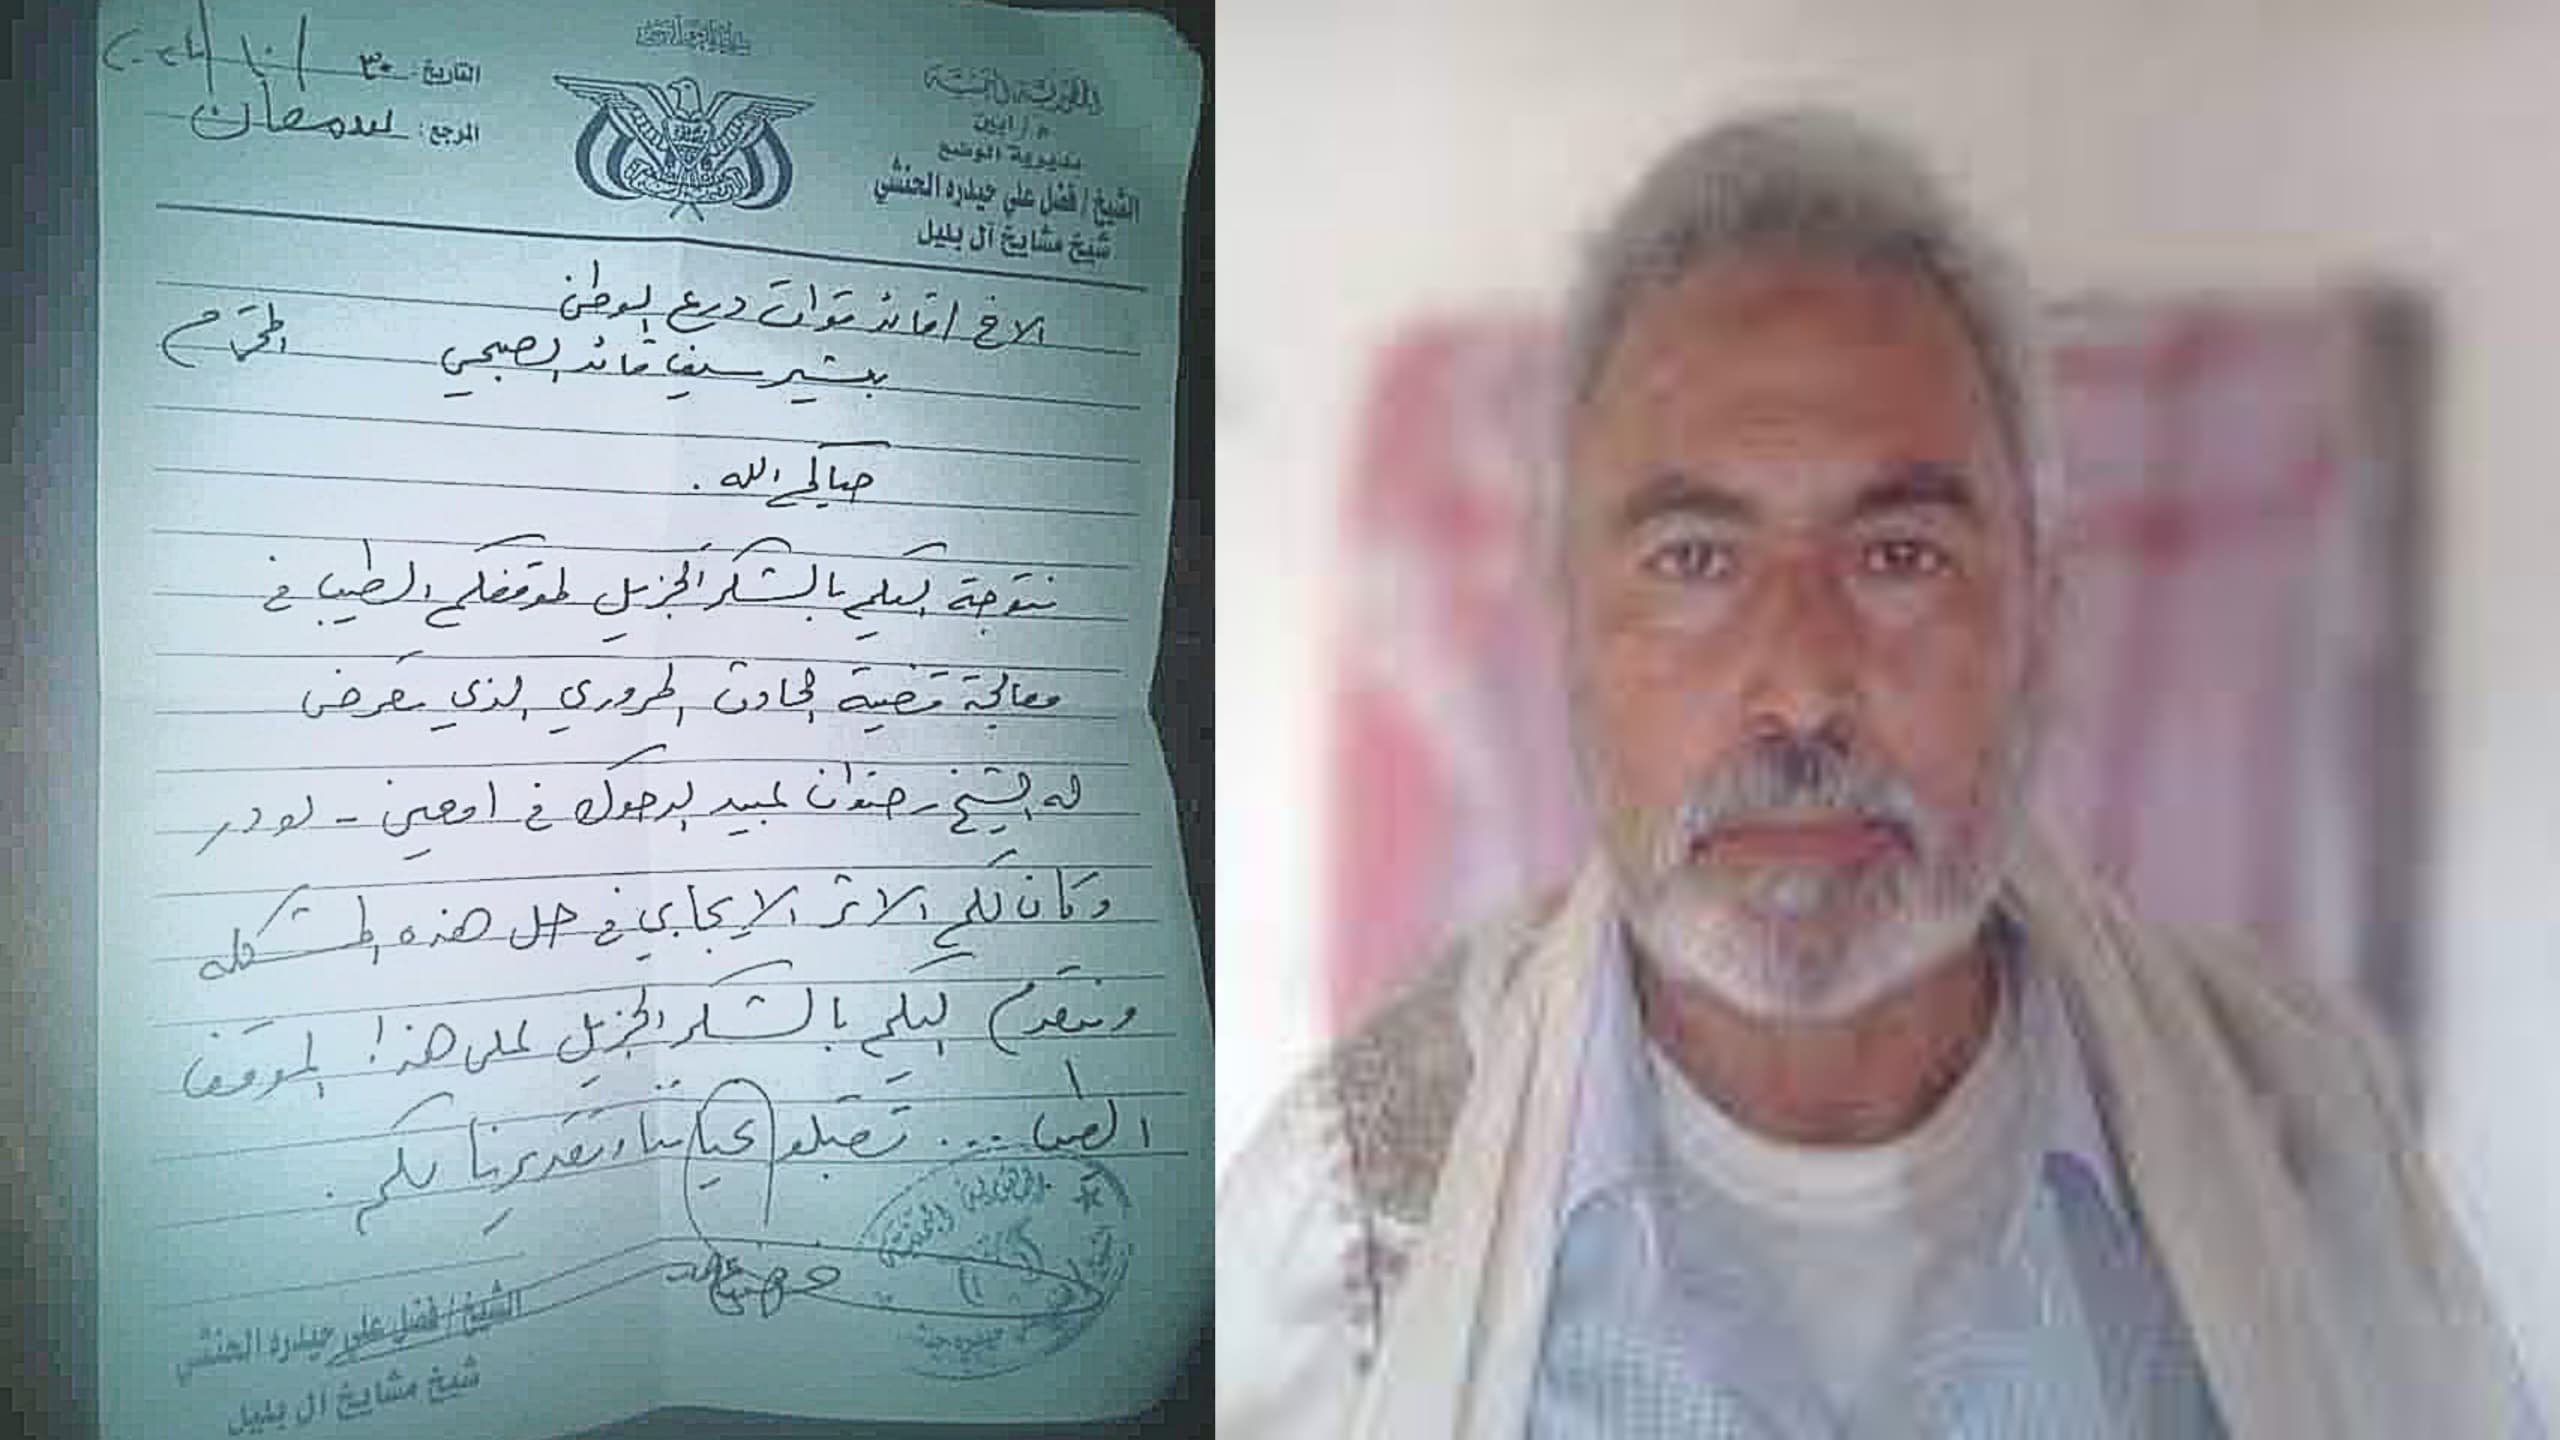 بسم الله الرحمن الرحيم
الجمهورية اليمنية
م/أبين
مديرية الوضيع
الشيخ/فضل علي حيدره الحنشي
شيخ مشايخ آل بليل
التاريخ: ٣٠/١٠/٢٠٢٤
المرجع:
الاخ / قائد قوات درع الوطن
بشير سيف قائد الصبيحي المحترم
حياكم الله .
نتوجة اليكم بالشكر الجزيل لموقفكم الطيب في
معالجة قضية الحادث المروري الذي تعرض
له الشيخ رضوان عبيد الدحوك في امعين - لودر
وكان لكم الاثر الايجابي في حل هذه المشكله
ونتقدم اليكم بالشكر الجزيل على هذا الموقف
الطيب ... تقبلوا تحياتنا وتقديرنا لكم .
الشيخ/فضل علي حيدره الحنشي
شيخ مشايخ آل بليل